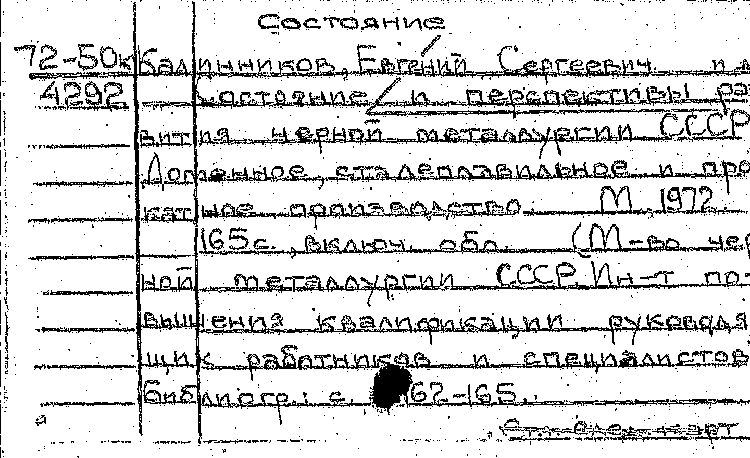 Состояние
72-50к Калинников, Евгений Сергеевич и д
4292 Состояние и перспективы раз
вития черной металлургии СССР
Доменное, сталеплавильное и про
катное производство. М 1972
165с., включ. обл. (М-во чер
ной металлургии СССР. Ин-т по-
вышения квалификации руководя
щих работников и специалистов
Библиогр.: с. 162-165.
См. след. карт